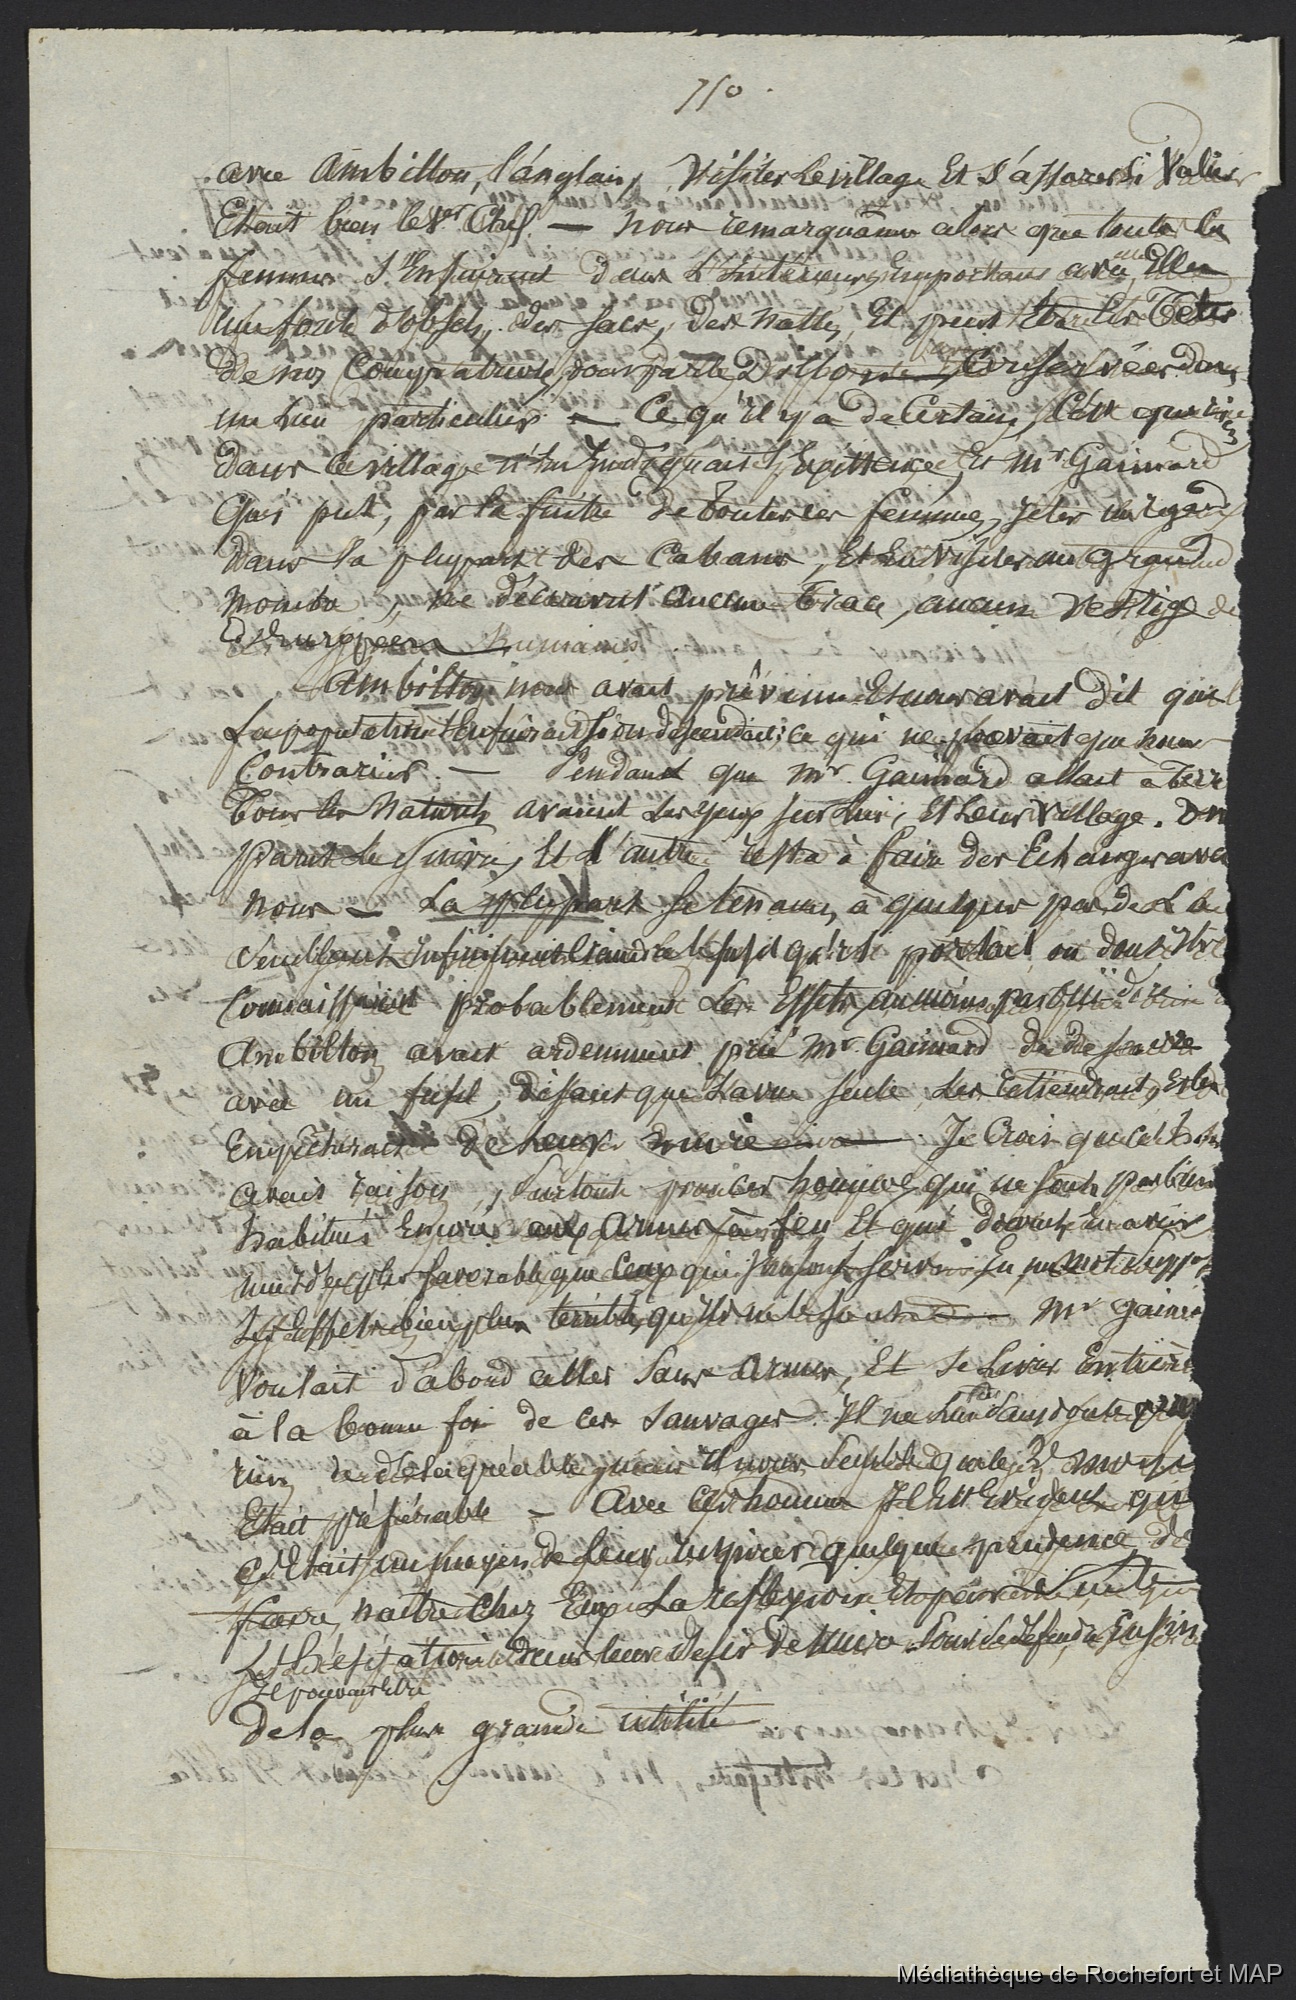 750.
avec Ambilton, l'anglais, visiter le village Et s'assurer si Valie
Etait bien le 1er Chef. — nous remarquâmes alors que toutes les
femmes s'Enfuirent dans L'intérieur, Emportant avec Elles
une foule d'objets, des sacs, des nattes, Et peut Etre les Têtes
de nos Compatriotes, conservées dans
un lieu particulier — Ce qu'il y a de Certain, C'est que rien
dans ce village n'en Indiquait l'Existence, Et Mr. Gaimard
Qui put, par la fuite de toutes ces femmes, jeter un regard
dans la plupart des Cabanes, Et En visiter un grand
nombre, ne découvrit aucune trace, aucun vestige de
humaines.
Ambilton nous avait prévenu Et nous avait dit que
la population s'Enfuirait si on descendait; ce qui ne pouvait que nous
Contrarier. — Pendant que Mr. Gaimard allait à Terre
Tous les Naturels avaient les yeux sur lui, Et leur village. Une
partie le suivi, Et l'autre resta à faire des Echanges avec
nous — La plupart se tenaient à quelques pas de La
veillant infiniment le fusil qu'il portait, ou dont Ils
Connaissaient probablement les Effets, au moins par ouï dire
Ambilton avait ardemment prié Mr. Gaimard de descendre
avec un fusil, disant que La vue seule les retiendrait, Et les
Empêcherait de leur nuire. Je Crois que cet
avait raison, surtout pour ces hommes qui ne sont pas bien
habitués Encore aux armes à feu Et qui doivent En avoir
une idée plus favorable que ceux qui s'En sont servis, En un mot
les Effets bien plus terribles qu'ils ne le sont — Mr. Gaima
Voulait d'abord aller sans armes, Et se Livrer Entière
à la bonne foi de ces Sauvages. Il ne lui sans doute
rien de désagréable, mais il nous semble que le 2d
Etait préférable — Avec ces hommes Il Est Evident qu
C'Etait un moyen de leur inspirer quelque prudence, de
faire naître Chez Eux La reflexion Et
L'hésitation dans leur désir de nuire. Enfin
Il pouvait Etre
de la plus grande utilité
Médiathèque de Rochefort et MAP